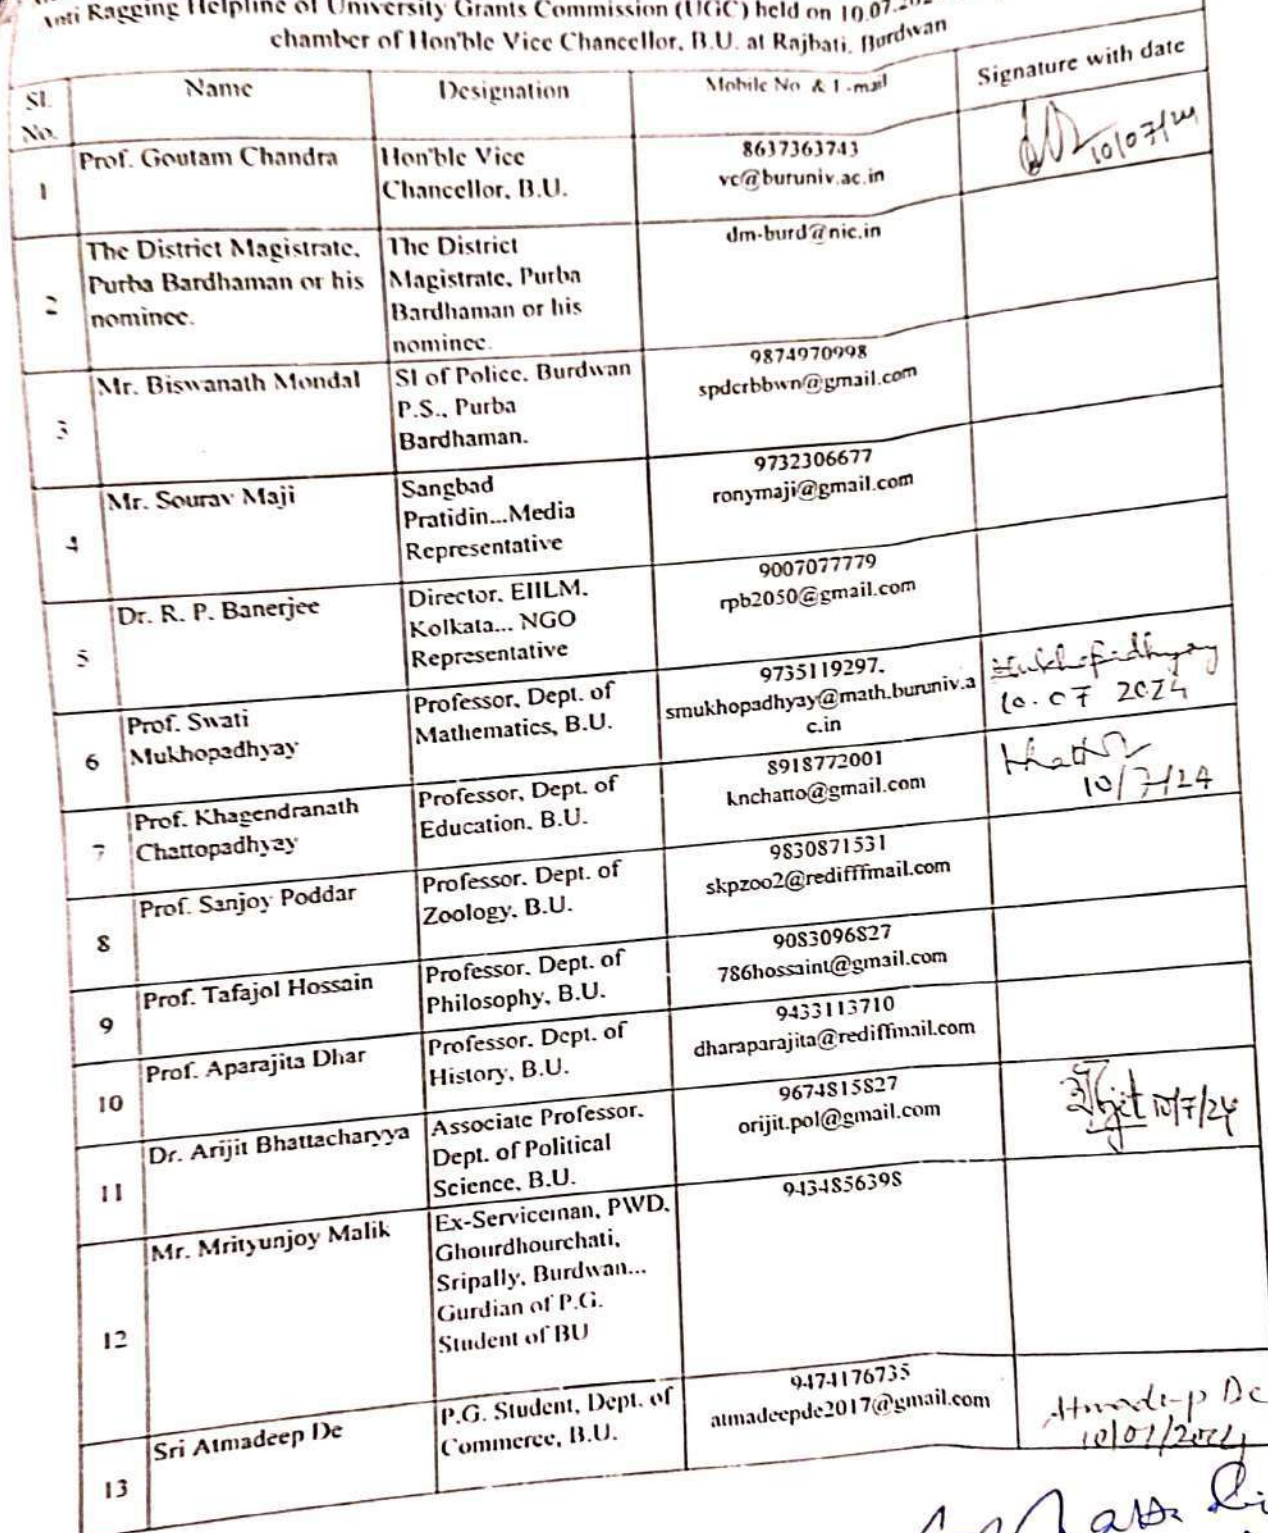 Anti Ragging Helpline of University Grants Commission (UGC) held on 10.07.
chamber of Hon'ble Vice Chancellor, B.U. at Rajbati, Burdwan
Sl. No.
Name
Designation
Mobile No & E-mail
Signature with date
1
Prof. Goutam Chandra
Hon'ble Vice
Chancellor, B.U.
8637363743
vc@buruniv.ac.in
10/07/24
2
The District Magistrate,
Purba Bardhaman or his
nominee.
The District
Magistrate, Purba
Bardhaman or his
nominee.
dm-burd@nic.in
3
Mr. Biswanath Mondal
SI of Police, Burdwan
P.S., Purba
Bardhaman.
9874970998
spdcrbbwn@gmail.com
4
Mr. Sourav Maji
Sangbad
Pratidin...Media
Representative
9732306677
ronymaji@gmail.com
5
Dr. R. P. Banerjee
Director, EIILM,
Kolkata... NGO
Representative
9007077779
rpb2050@gmail.com
6
Prof. Swati
Mukhopadhyay
Professor, Dept. of
Mathematics, B.U.
9735119297,
smukhopadhyay@math.buruniv.a
c.in
Mukhopadhyay
10.07 2024
7
Prof. Khagendranath
Chattopadhyay
Professor, Dept. of
Education, B.U.
8918772001
knchatto@gmail.com
10/7/24
8
Prof. Sanjoy Poddar
Professor, Dept. of
Zoology, B.U.
9830871531
skpzoo2@redifffmail.com
9
Prof. Tafajol Hossain
Professor, Dept. of
Philosophy, B.U.
9083096827
786hossaint@gmail.com
10
Prof. Aparajita Dhar
Professor, Dept. of
History, B.U.
9433113710
dharaparajita@rediffmail.com
11
Dr. Arijit Bhattacharyya
Associate Professor,
Dept. of Political
Science, B.U.
9674815827
orijit.pol@gmail.com
10/7/24
12
Mr. Mrityunjoy Malik
Ex-Serviceman, PWD,
Ghourdhourchati,
Sripally, Burdwan...
Gurdian of P.G.
Student of BU
9434856398
13
Sri Atmadeep De
P.G. Student, Dept. of
Commerce, B.U.
9474176735
atmadeepde2017@gmail.com
Atmadeep De
10/07/2024